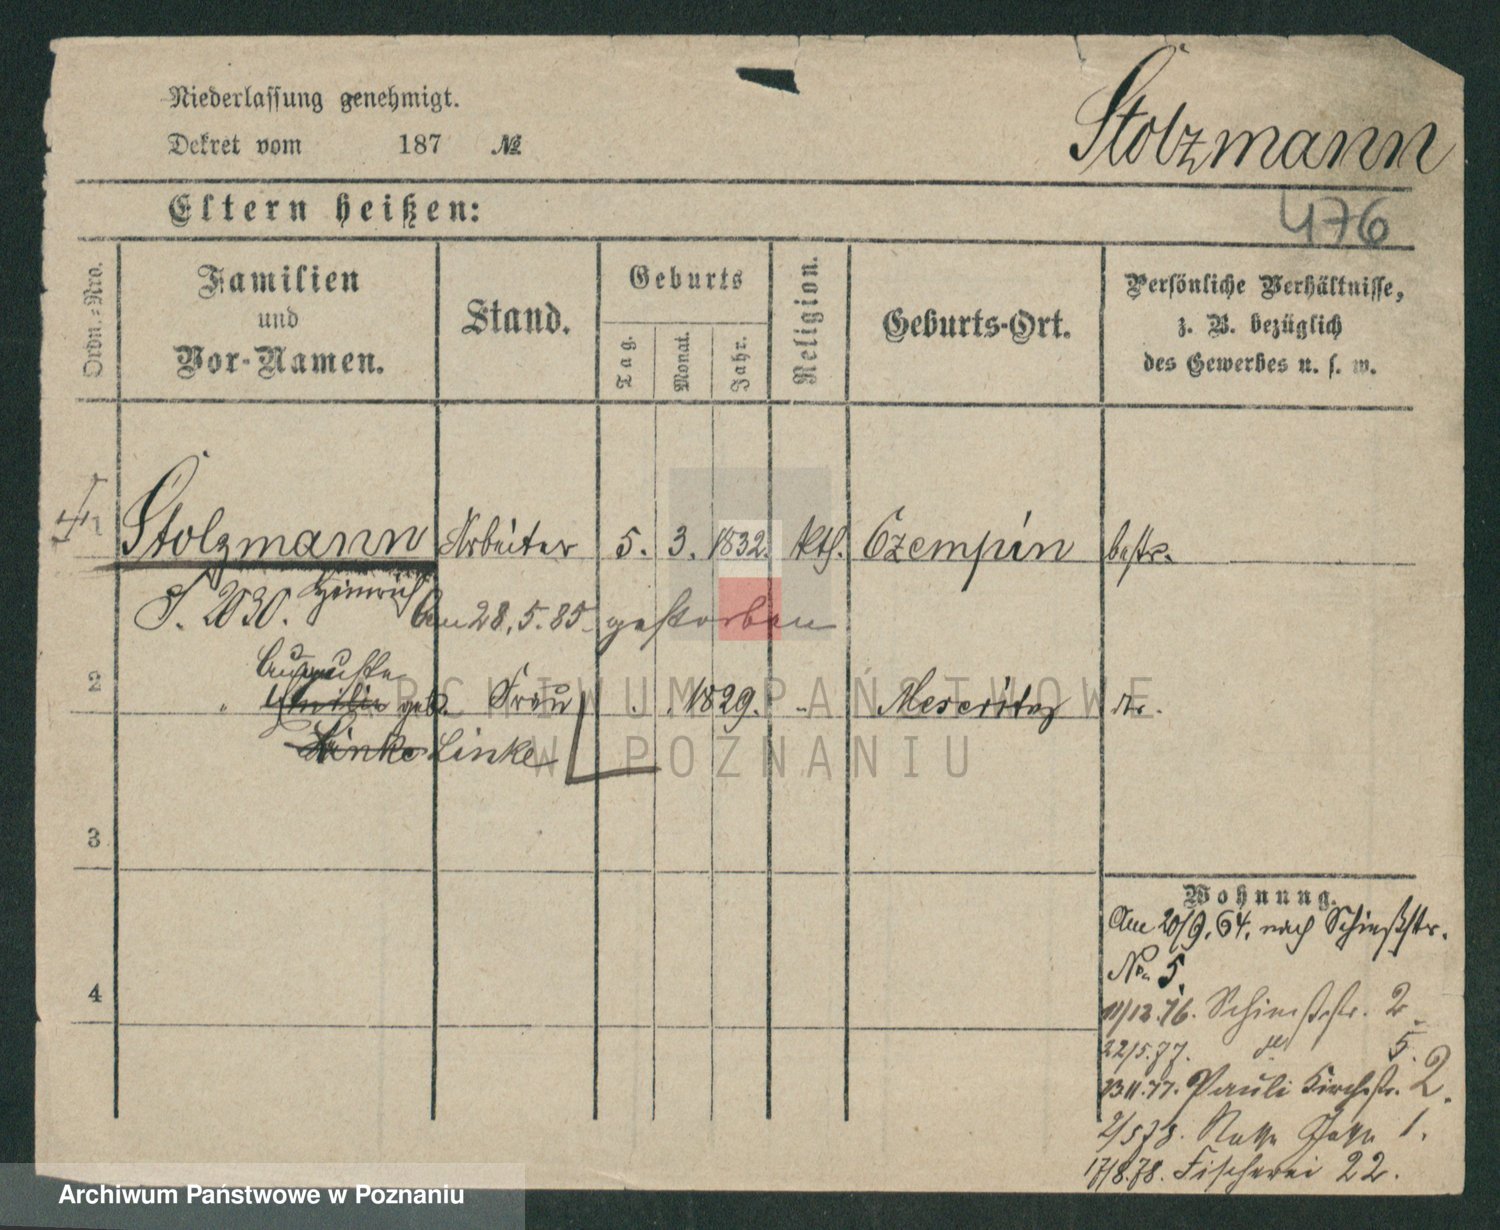 Niederlassung genehmigt.
Dekret vom 187 №
Stolzmann
Eltern heißen:
476
Ordn.-Nro.
Familien
und
Vor-Namen.
Stand.
Geburts
Tag.
Monat.
Jahr.
Religion.
Geburts-Ort.
Persönliche Verhältnisse,
z. B. bezüglich
des Gewerbes u. s. w.
1 Stolzmann Arbeiter 5. 3. 1832. kth. Czempin bestr.
Heinrich
S. 2030. Am 28.5.85. gestorben
Auguste
2 " geb. Frau 1829. " Meseritz do.
Linke Linke
3
4
Wohnung.
Am 20/9.64. nach Schießstr.
No. 5.
11/12.76. Schießstr. 2.
22/5.77. do 5.
13.11.77. Pauli Kirchstr. 2.
2/5 78. 1.
17/8.78. Fischerei 22.
ARCHIWUM PAŃSTWOWE
W POZNANIU
Archiwum Państwowe w Poznaniu